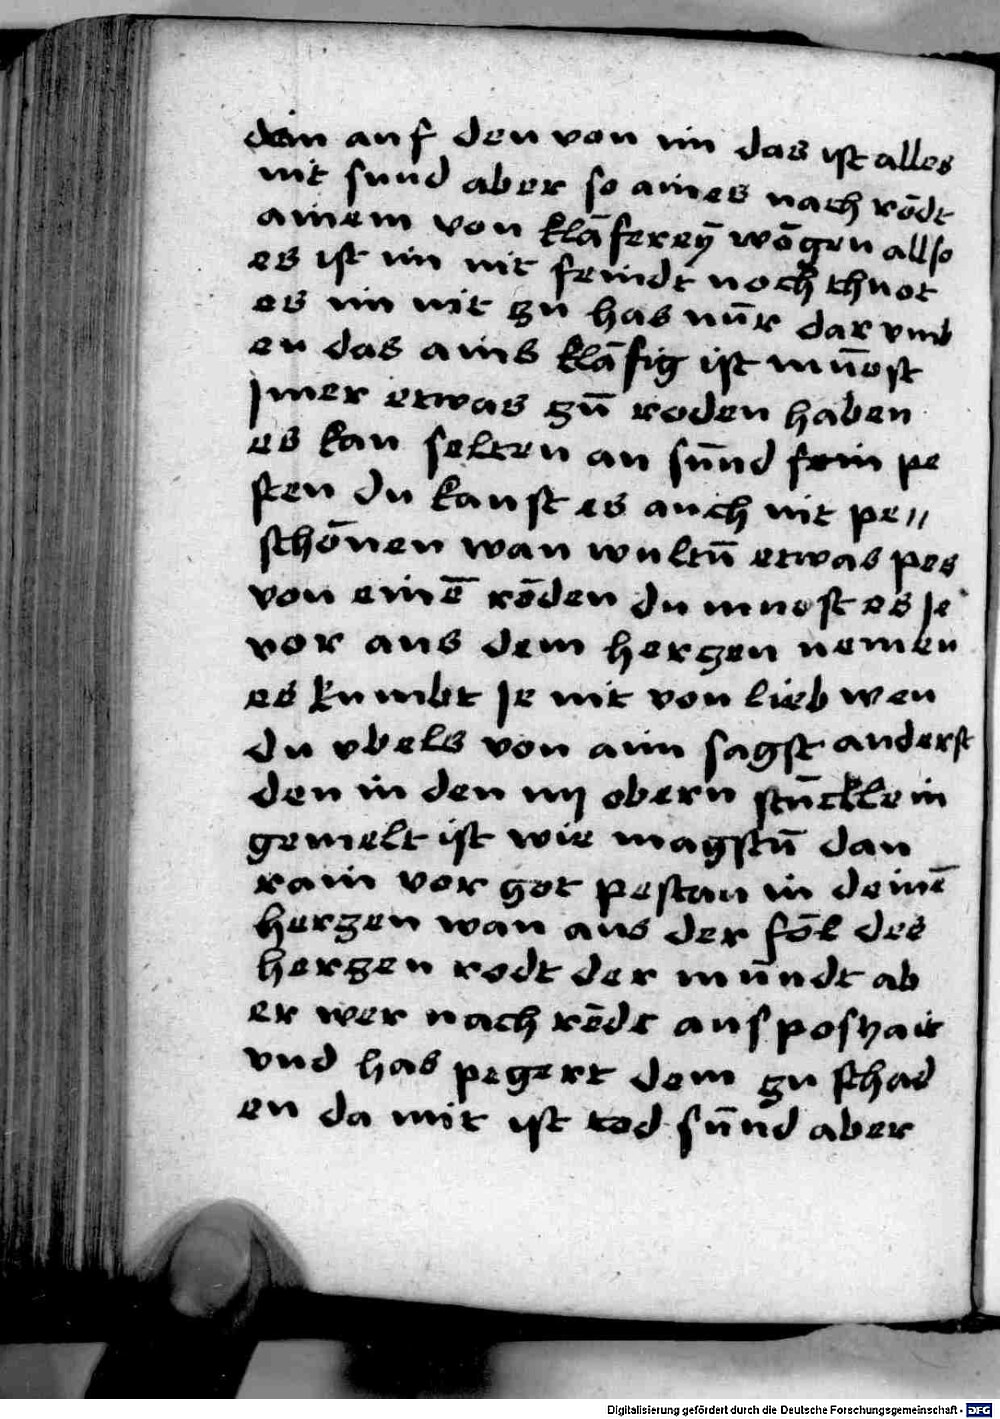 dein auf den von im das ist alles
nit sund aber so aines nach rōdt
ainem von klāfereӯ wōgen allso
es ist im nit feindt noch thuot
es im nit zu has nūr dar vmb
en das ains klāfig ist mūost
jmer etwas zū roden haben
es kan selten an sūnd sein pe
sten du kanst es auch nit pe〃
schōnen wan wultū etwas pes
von einē rōden du muost es je
vor aus dem herzen nemen
es kumbt je nit von lieb wen
du vbels von aim sagst anderst
den in den iiij obern stūcklein
gemelt ist wie magstū dan
rain vor got pestan in deinē
herzen wan aus der fōl des
herzen rodt der mūndt ab
er wer nach rēdt aus poshait
vnd has pegert dem zu schad
en da mit ist tod sūnd aber
Digitalisierung gefördert durch die Deutsche Forschungsgemeinschaft - DFG